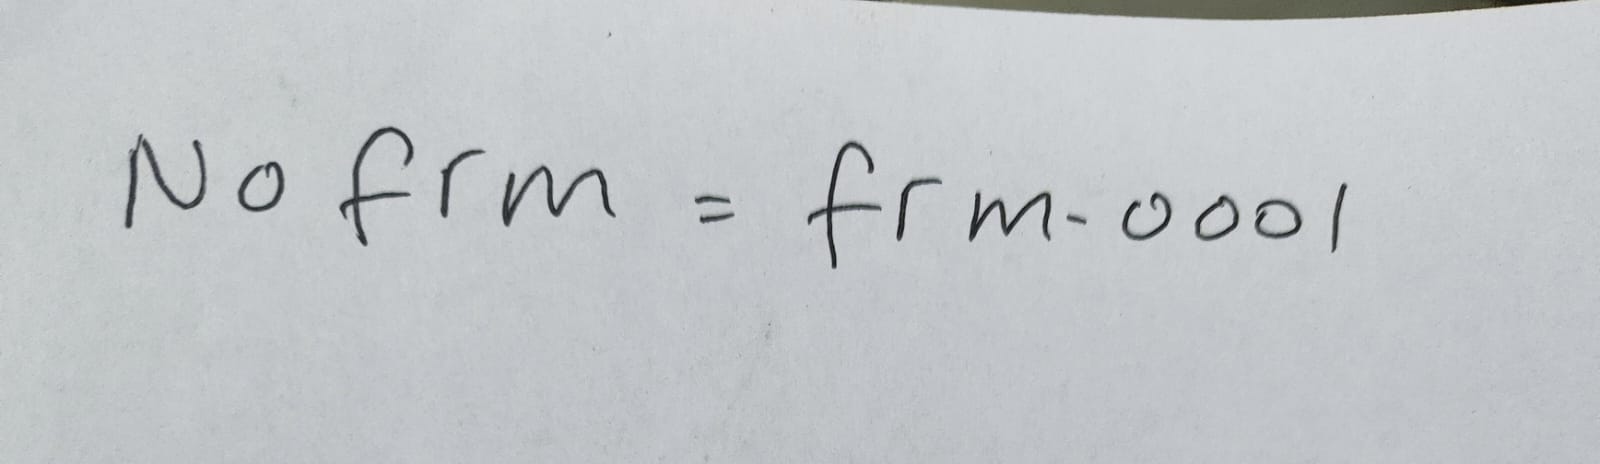 No frm = frm-0001